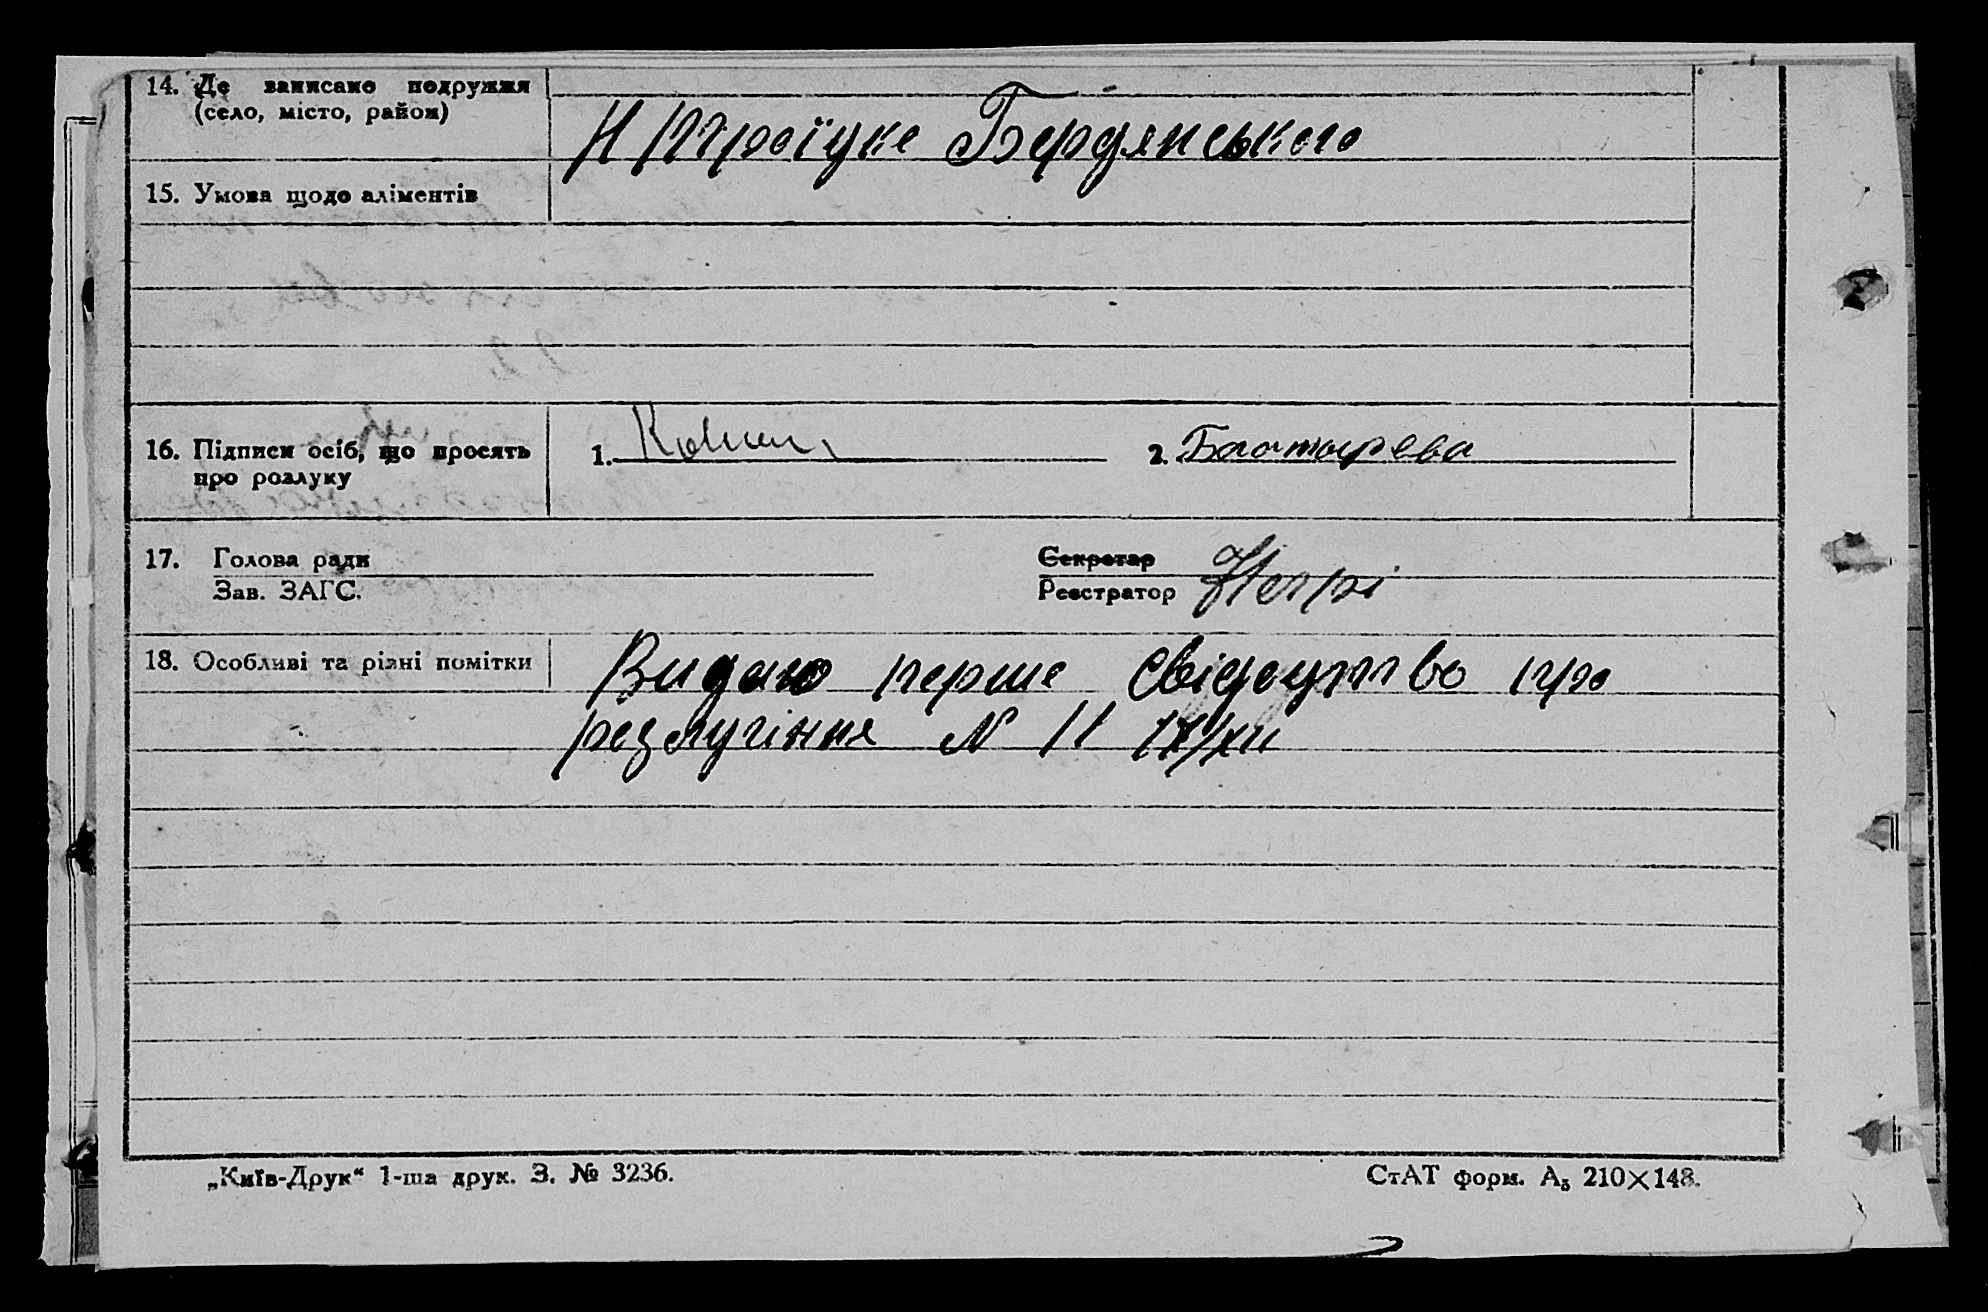 14. Де записано подружжя
(село, місто, район)
Н Троїцке Бердянського
15. Умова щодо аліментів
16. Підписи осіб, що просять
про розлуку
1.
2. Баатырева
17. Голова ради
Зав. ЗАГС.
Секретар
Реєстратор
18. Особливі та різні помітки
Видано перше свідоцтво про
розлучіння № 11 17/XII
„Київ-Друк“ 1-ша друк. З. № 3236.
СтАТ форм. А₅ 210×148.